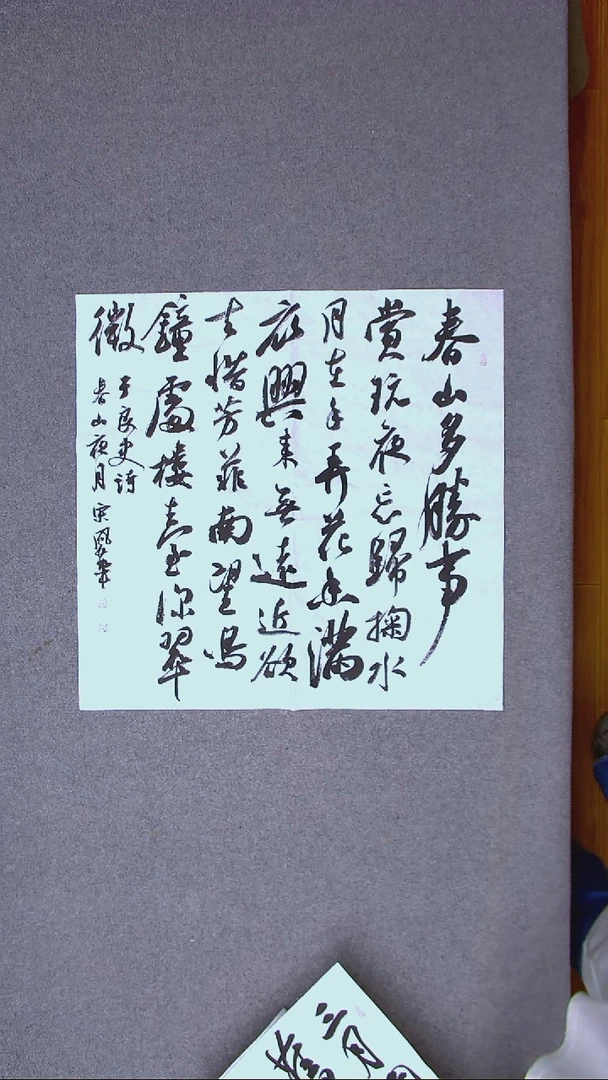 春山多勝事
賞玩夜忘歸掬水
月在手弄花香滿
衣興來無遠近欲
去惜芳菲南望鳴
鐘處樓臺深翠
微
于良史詩
春山夜月 宋
三月